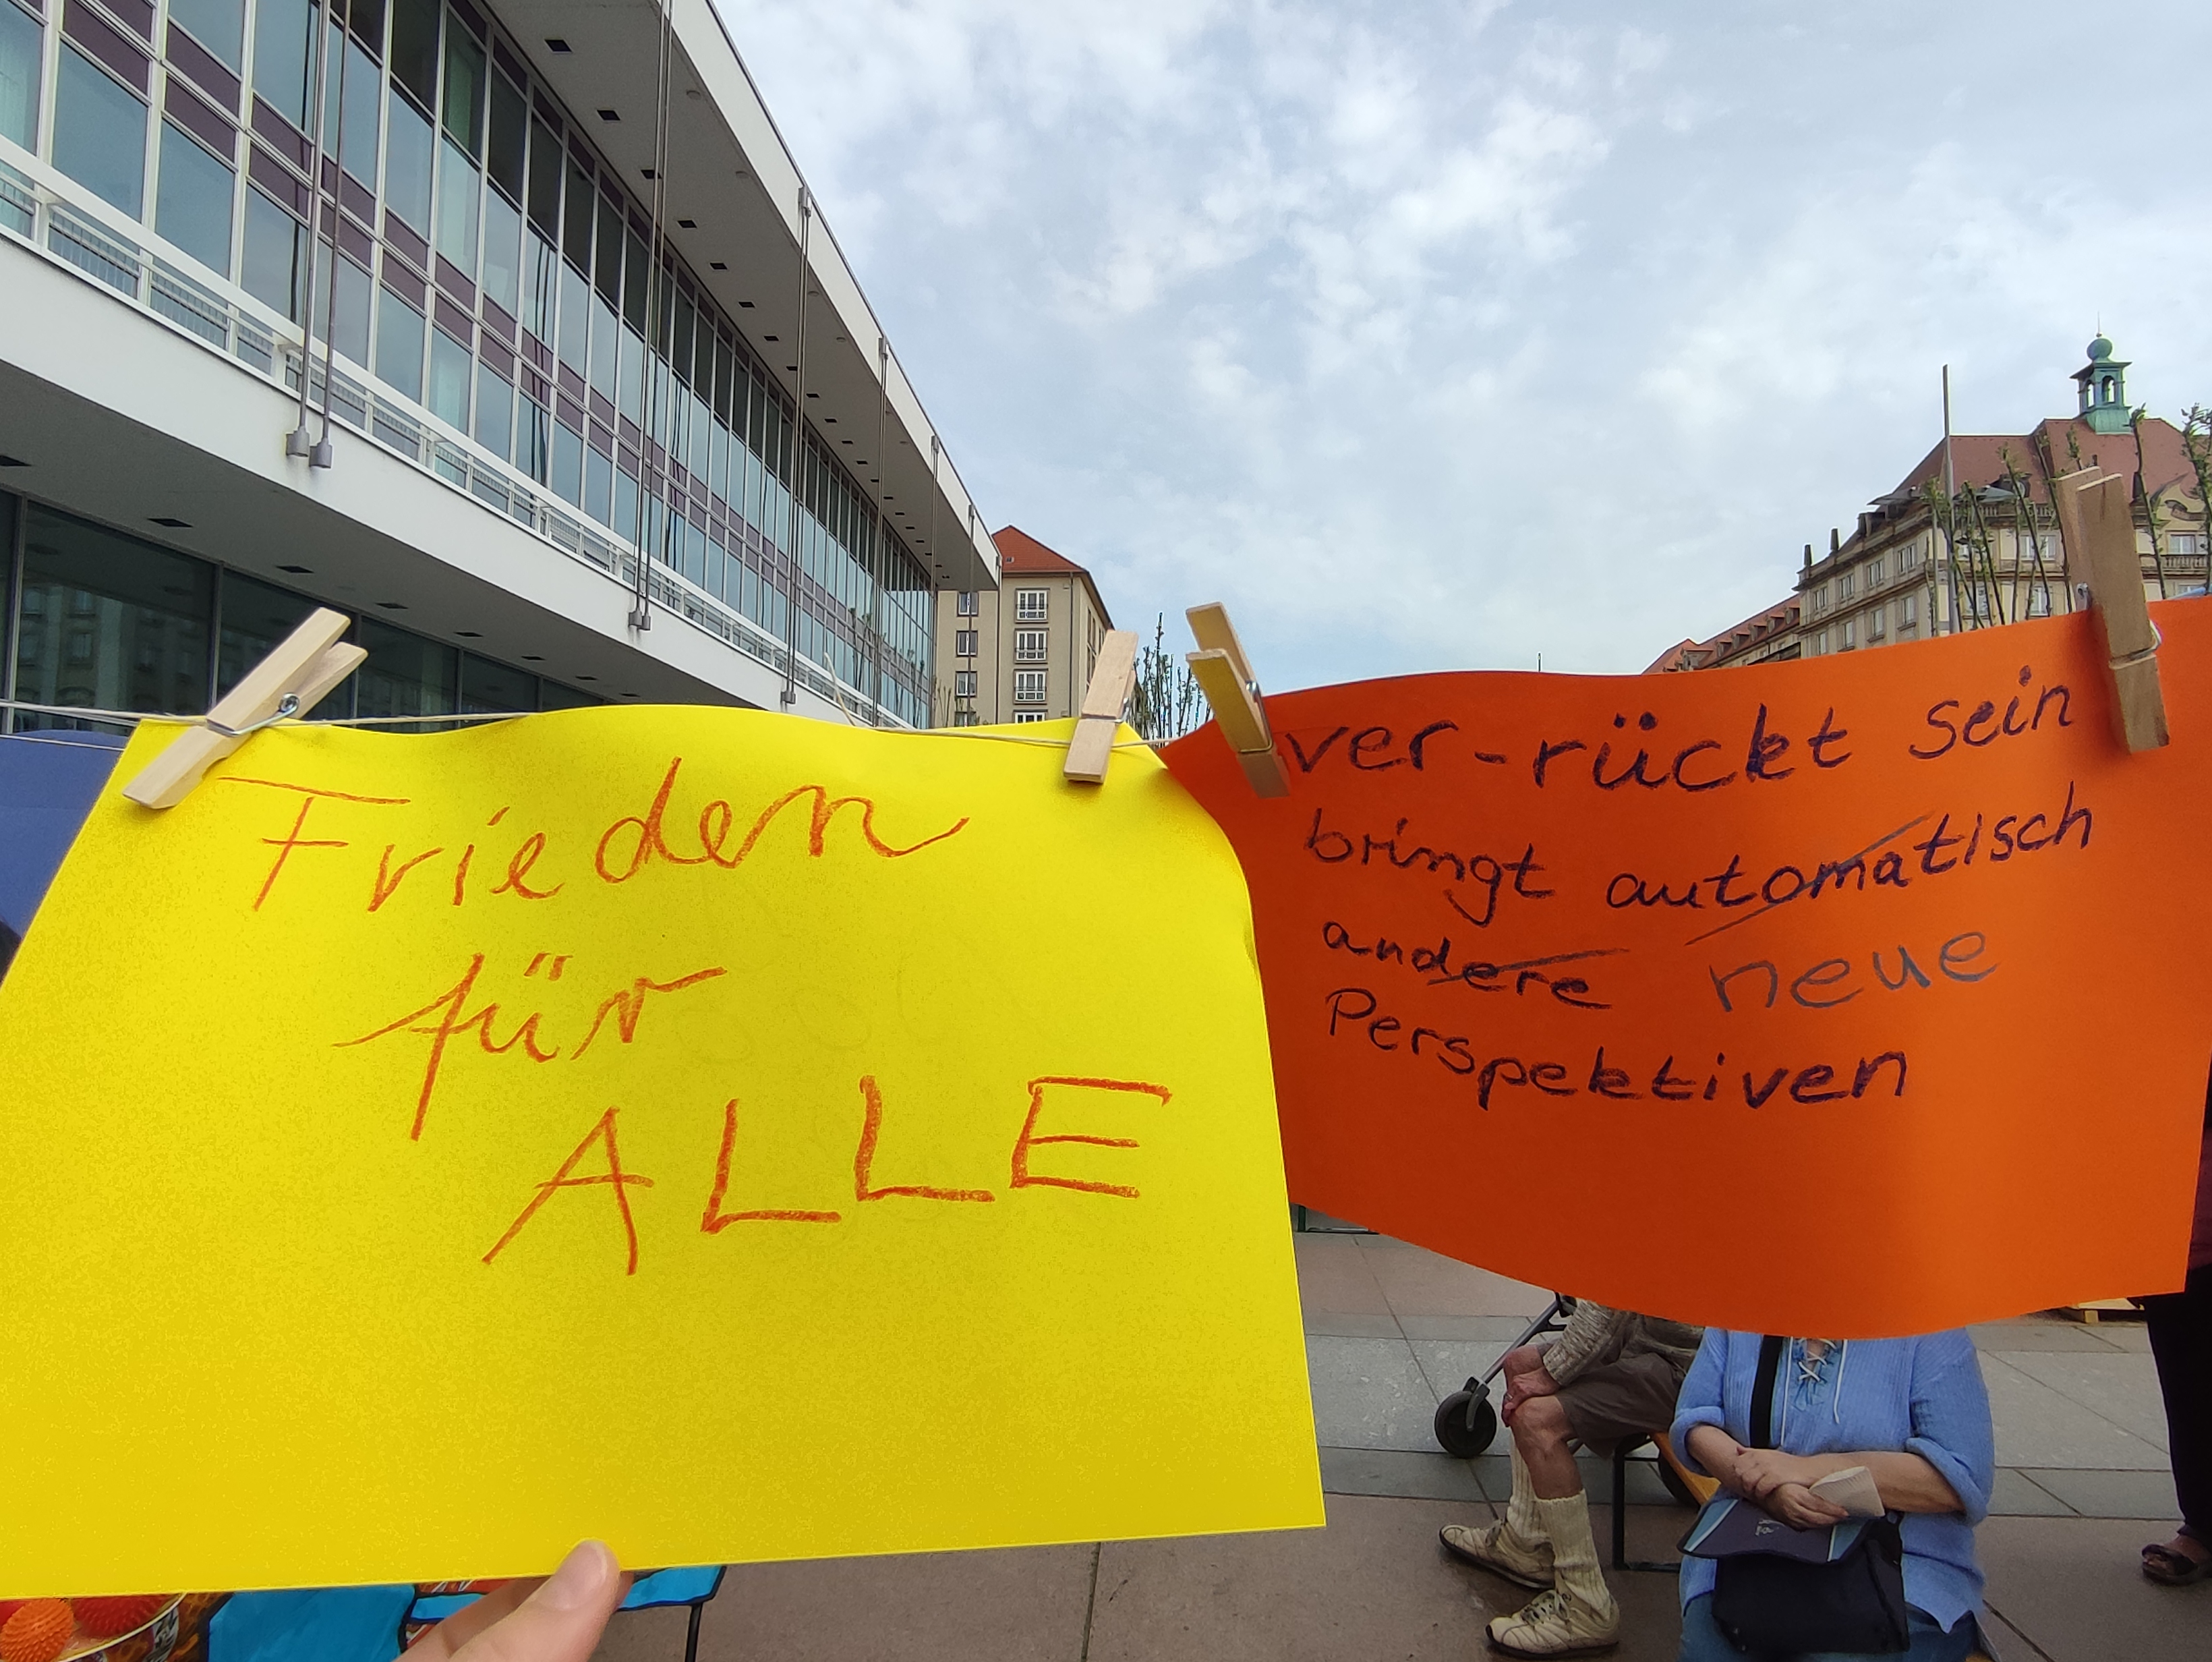 Frieden
für
ALLE
ver-rückt sein
bringt automatisch
andere neue
Perspektiven